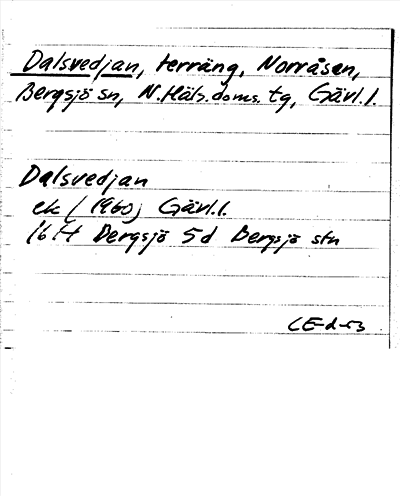 Dalsvedjan, terräng, Norråsen,
Bergsjö sn, N.Häls.doms.tg, Gävl.l.
Dalsvedjan
ek (1960) Gävl.l.
16 H Bergsjö 5d Bergsjö stn